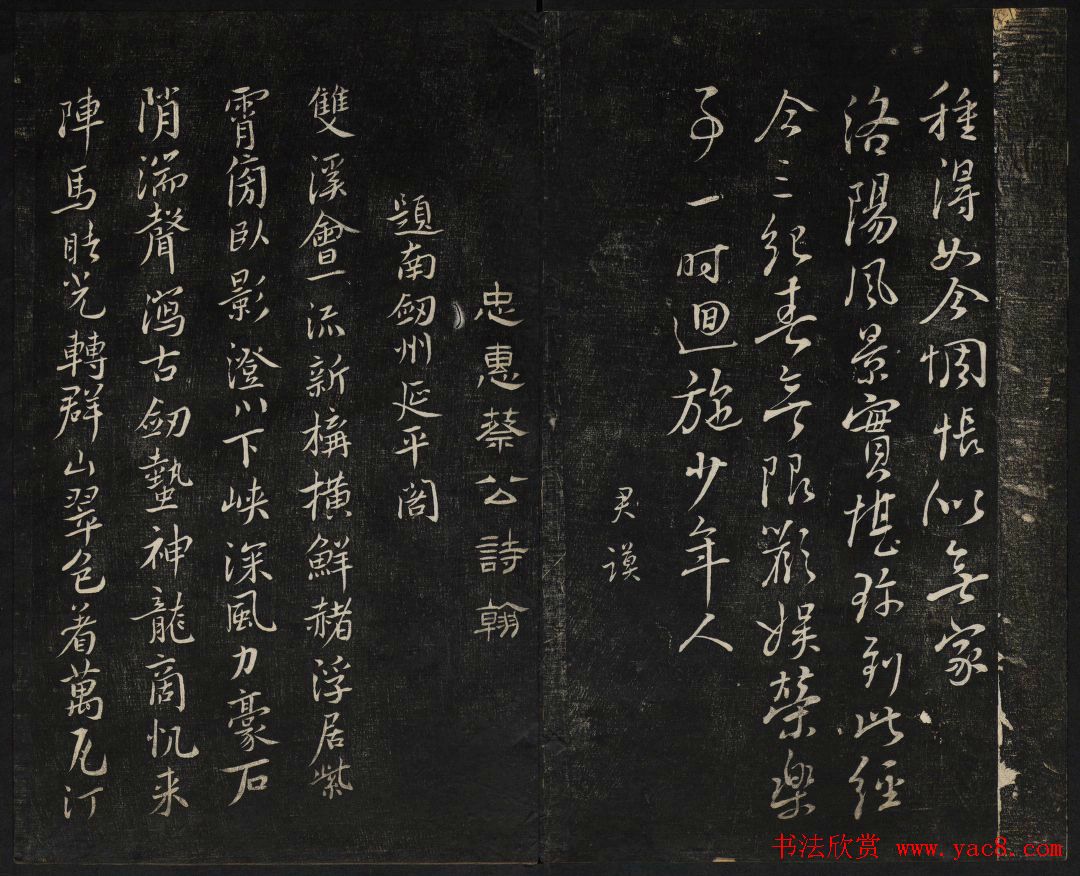 種得如今惆悵似無家
洛陽風景實堪珍到此經
今三紀春無限歡娛榮樂
事一時迴施少年人
君謨
忠惠蔡公詩翰
題南劔州延平閣
雙溪會一流新構橫鮮赭浮居紫
霄傍臥影澄川下峽深風力豪石
陗湍聲瀉古劔蟄神龍商帆来
陣馬晴光轉群山翠色着萬瓦汀
书法欣赏 www.yac8.com